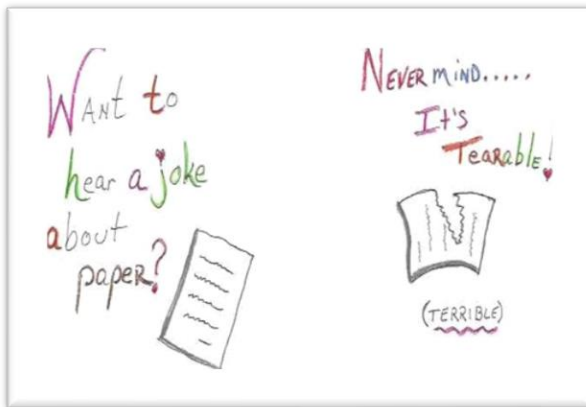 Want to
hear a joke
about
paper?
Never mind.....
It's
Tearable!
(TERRIBLE)